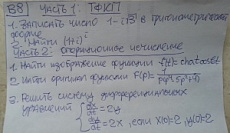 В8 Часть 1: ТФКП
1. Записать число 1-i√3 в тригонометрической
форме
2. Найти (1+i)
Часть 2: операционное исчисление
1. Найти изображение функции f(t)=
2. Найти оригинал функции F(p)=
3. Решить систему дифференциальных
уравнений { dx/dt = 2y
dy/dt = 2x, если x(0)=2, y(0)=2